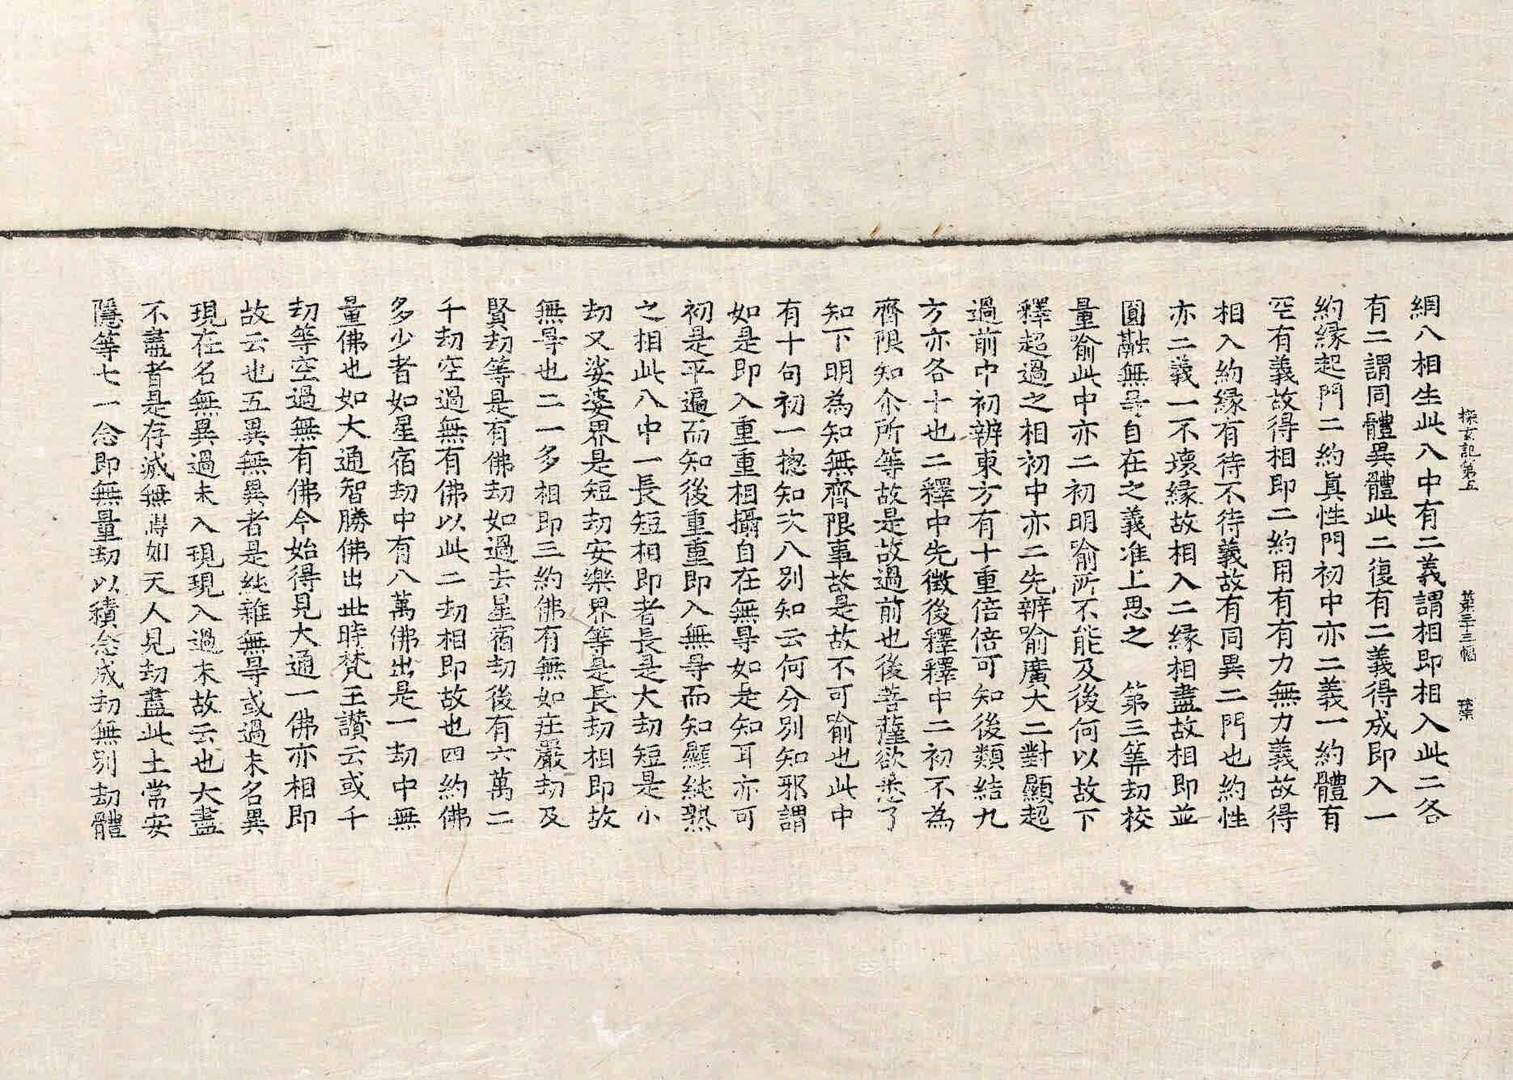 探玄記第五　第三十三幅　葉
網八相生此八中有二義謂相即相入此二各
有二謂同體異體此二復有二義得成即入一
約緣起門二約真性門初中亦二義一約體有
空有義故得相即二約用有有力無力義故得
相入約緣有待不待義故有同異二門也約性
亦二義一不壞緣故相入二緣相盡故相即並
圓融無㝵自在之義准上思之　第三筭刧校
量喻此中亦二初明喻所不能及後何以故下
釋超過之相初中亦二先辨喻廣大二對顯超
過前中初辨東方有十重倍倍可知後類結九
方亦各十也二釋中先徵後釋釋中二初不為
齊限知尒所等故是故過前也後菩薩欲悉了
知下明為知無齊限事故是故不可喻也此中
有十句初一揔知次八別知云何分別知邪謂
如是即入重重相攝自在無㝵如是知耳亦可
初是平遍而知後重重即入無㝵而知顯純熟
之相此八中一長短相即者長是大刧短是小
刧又娑婆界是短刧安樂界等是長刧相即故
無㝵也二一多相即三約佛有無如莊嚴刧及
賢刧等是有佛刧如過去星宿刧後有六萬二
千刧空過無有佛以此二刧相即故也四約佛
多少者如星宿刧中有八萬佛出是一刧中無
量佛也如大通智勝佛出此時梵王讃云或千
刧等空過無有佛今始得見大通一佛亦相即
故云也五異無異者是純雜無㝵或過未名異
現在名無異過未入現現入過未故云也大盡
不盡者是存滅無㝵如天人見刧盡此土常安
隱等七一念即無量刧以積念成刧無別刧體